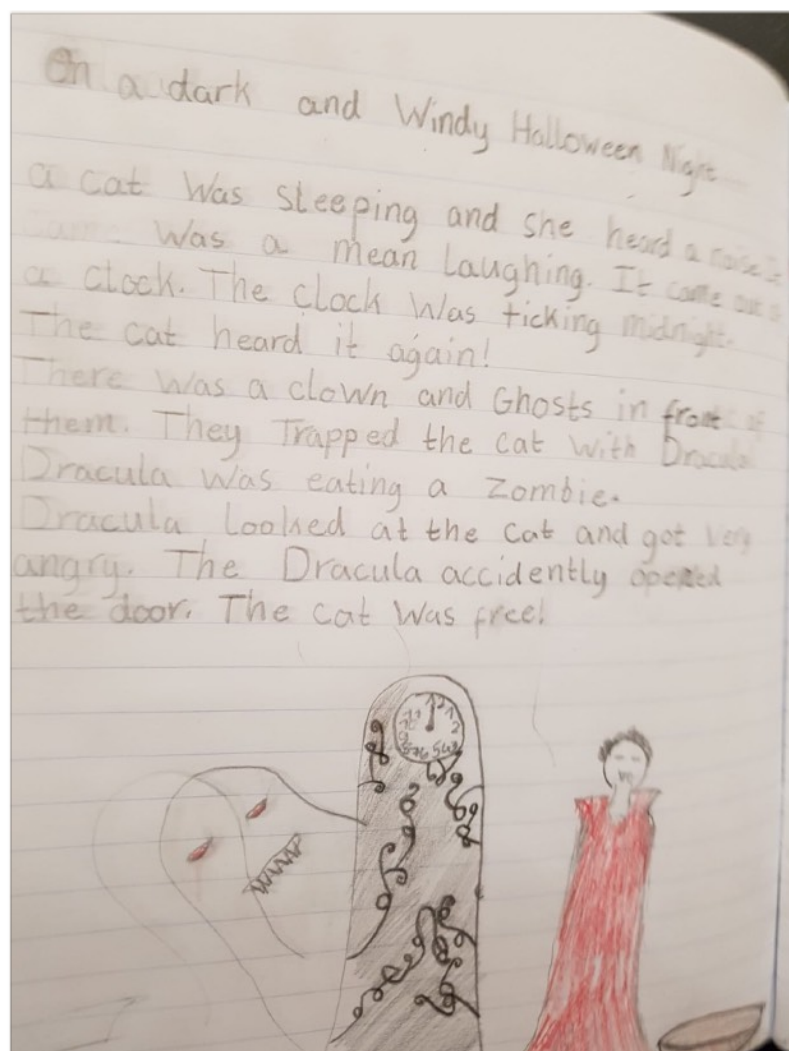 On a dark and Windy Halloween Night
a cat was sleeping and she heard a noise it
was a mean laughing. It came out of
a clock. The clock was ticking midnight.
The cat heard it again!
There was a clown and Ghosts in front of
them. They Trapped the cat with Dracula
Dracula was eating a Zombie.
Dracula looked at the cat and got very
angry. The Dracula accidently opened
the door. The cat was free!